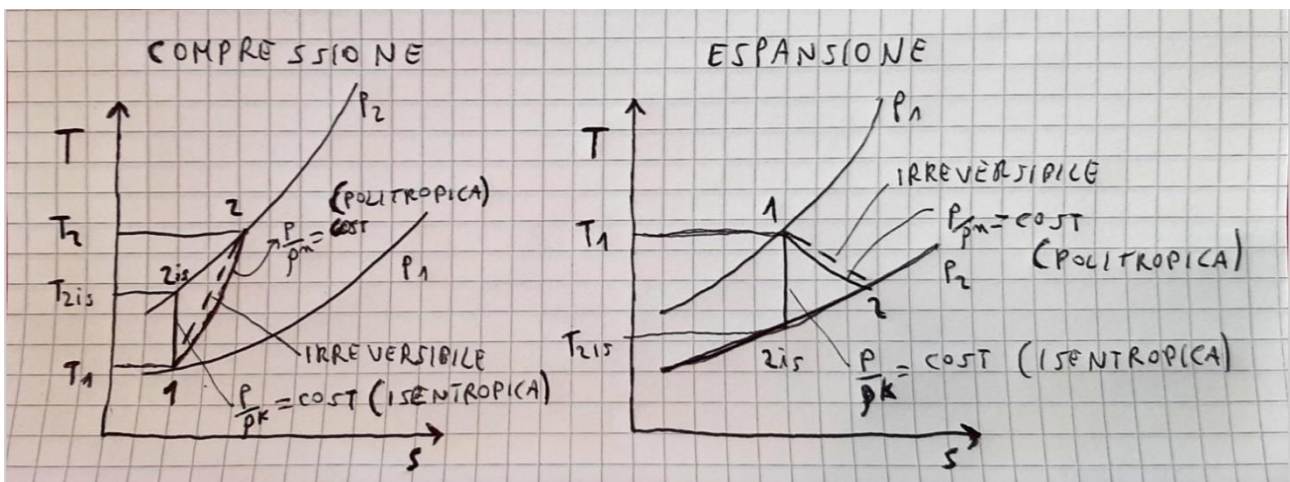 COMPRESSIONE
T
P2
(POLITROPICA)
P/ρn = COST
2
T2
2is
P1
T2is
IRREVERSIBILE
T1
1
P/ρk = COST (ISENTROPICA)
S
ESPANSIONE
T
P1
IRREVERSIBILE
1
P/ρn = COST
T1
(POLITROPICA)
P2
2
T2is
2is
P/ρk = COST (ISENTROPICA)
S